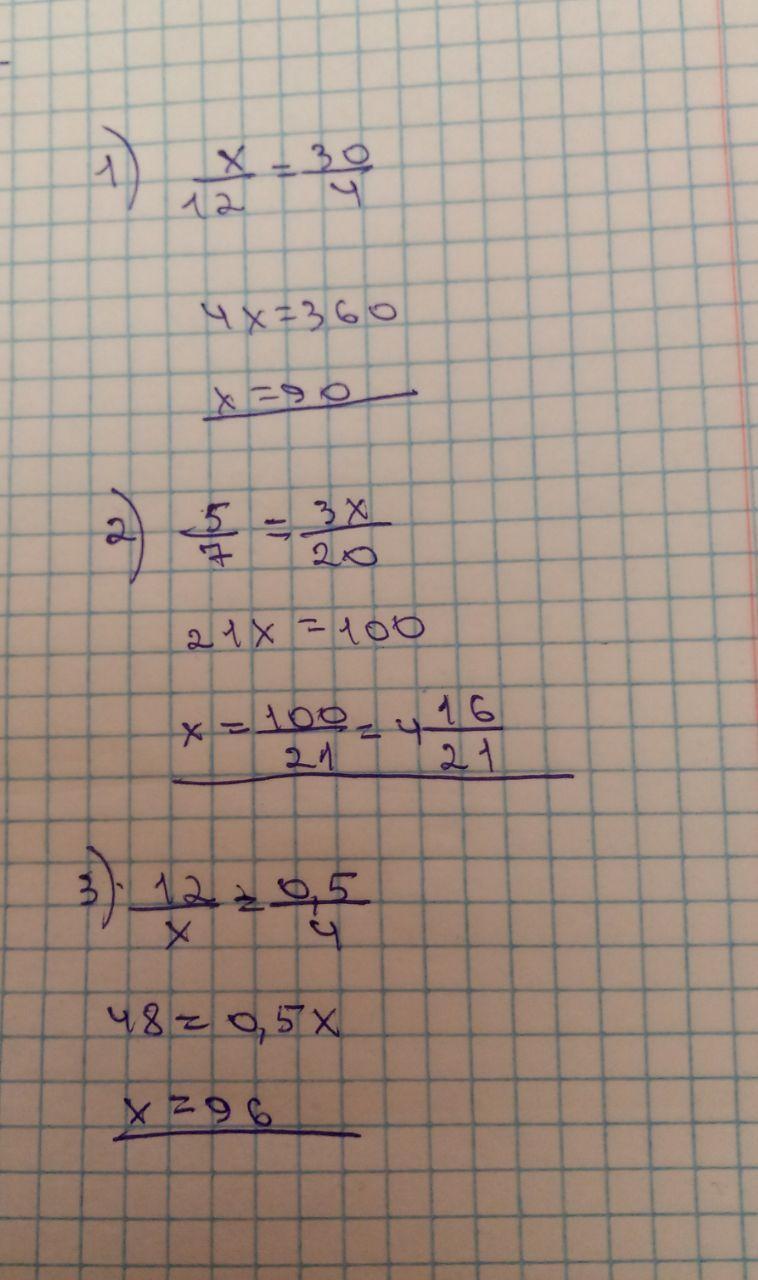 1) x/12 = 30/4
4x=360
x=90
2) 5/7 = 3x/20
21x=100
x = 100/21 = 4 16/21
3) 12/x = 0,5/4
48 = 0,5x
x=96